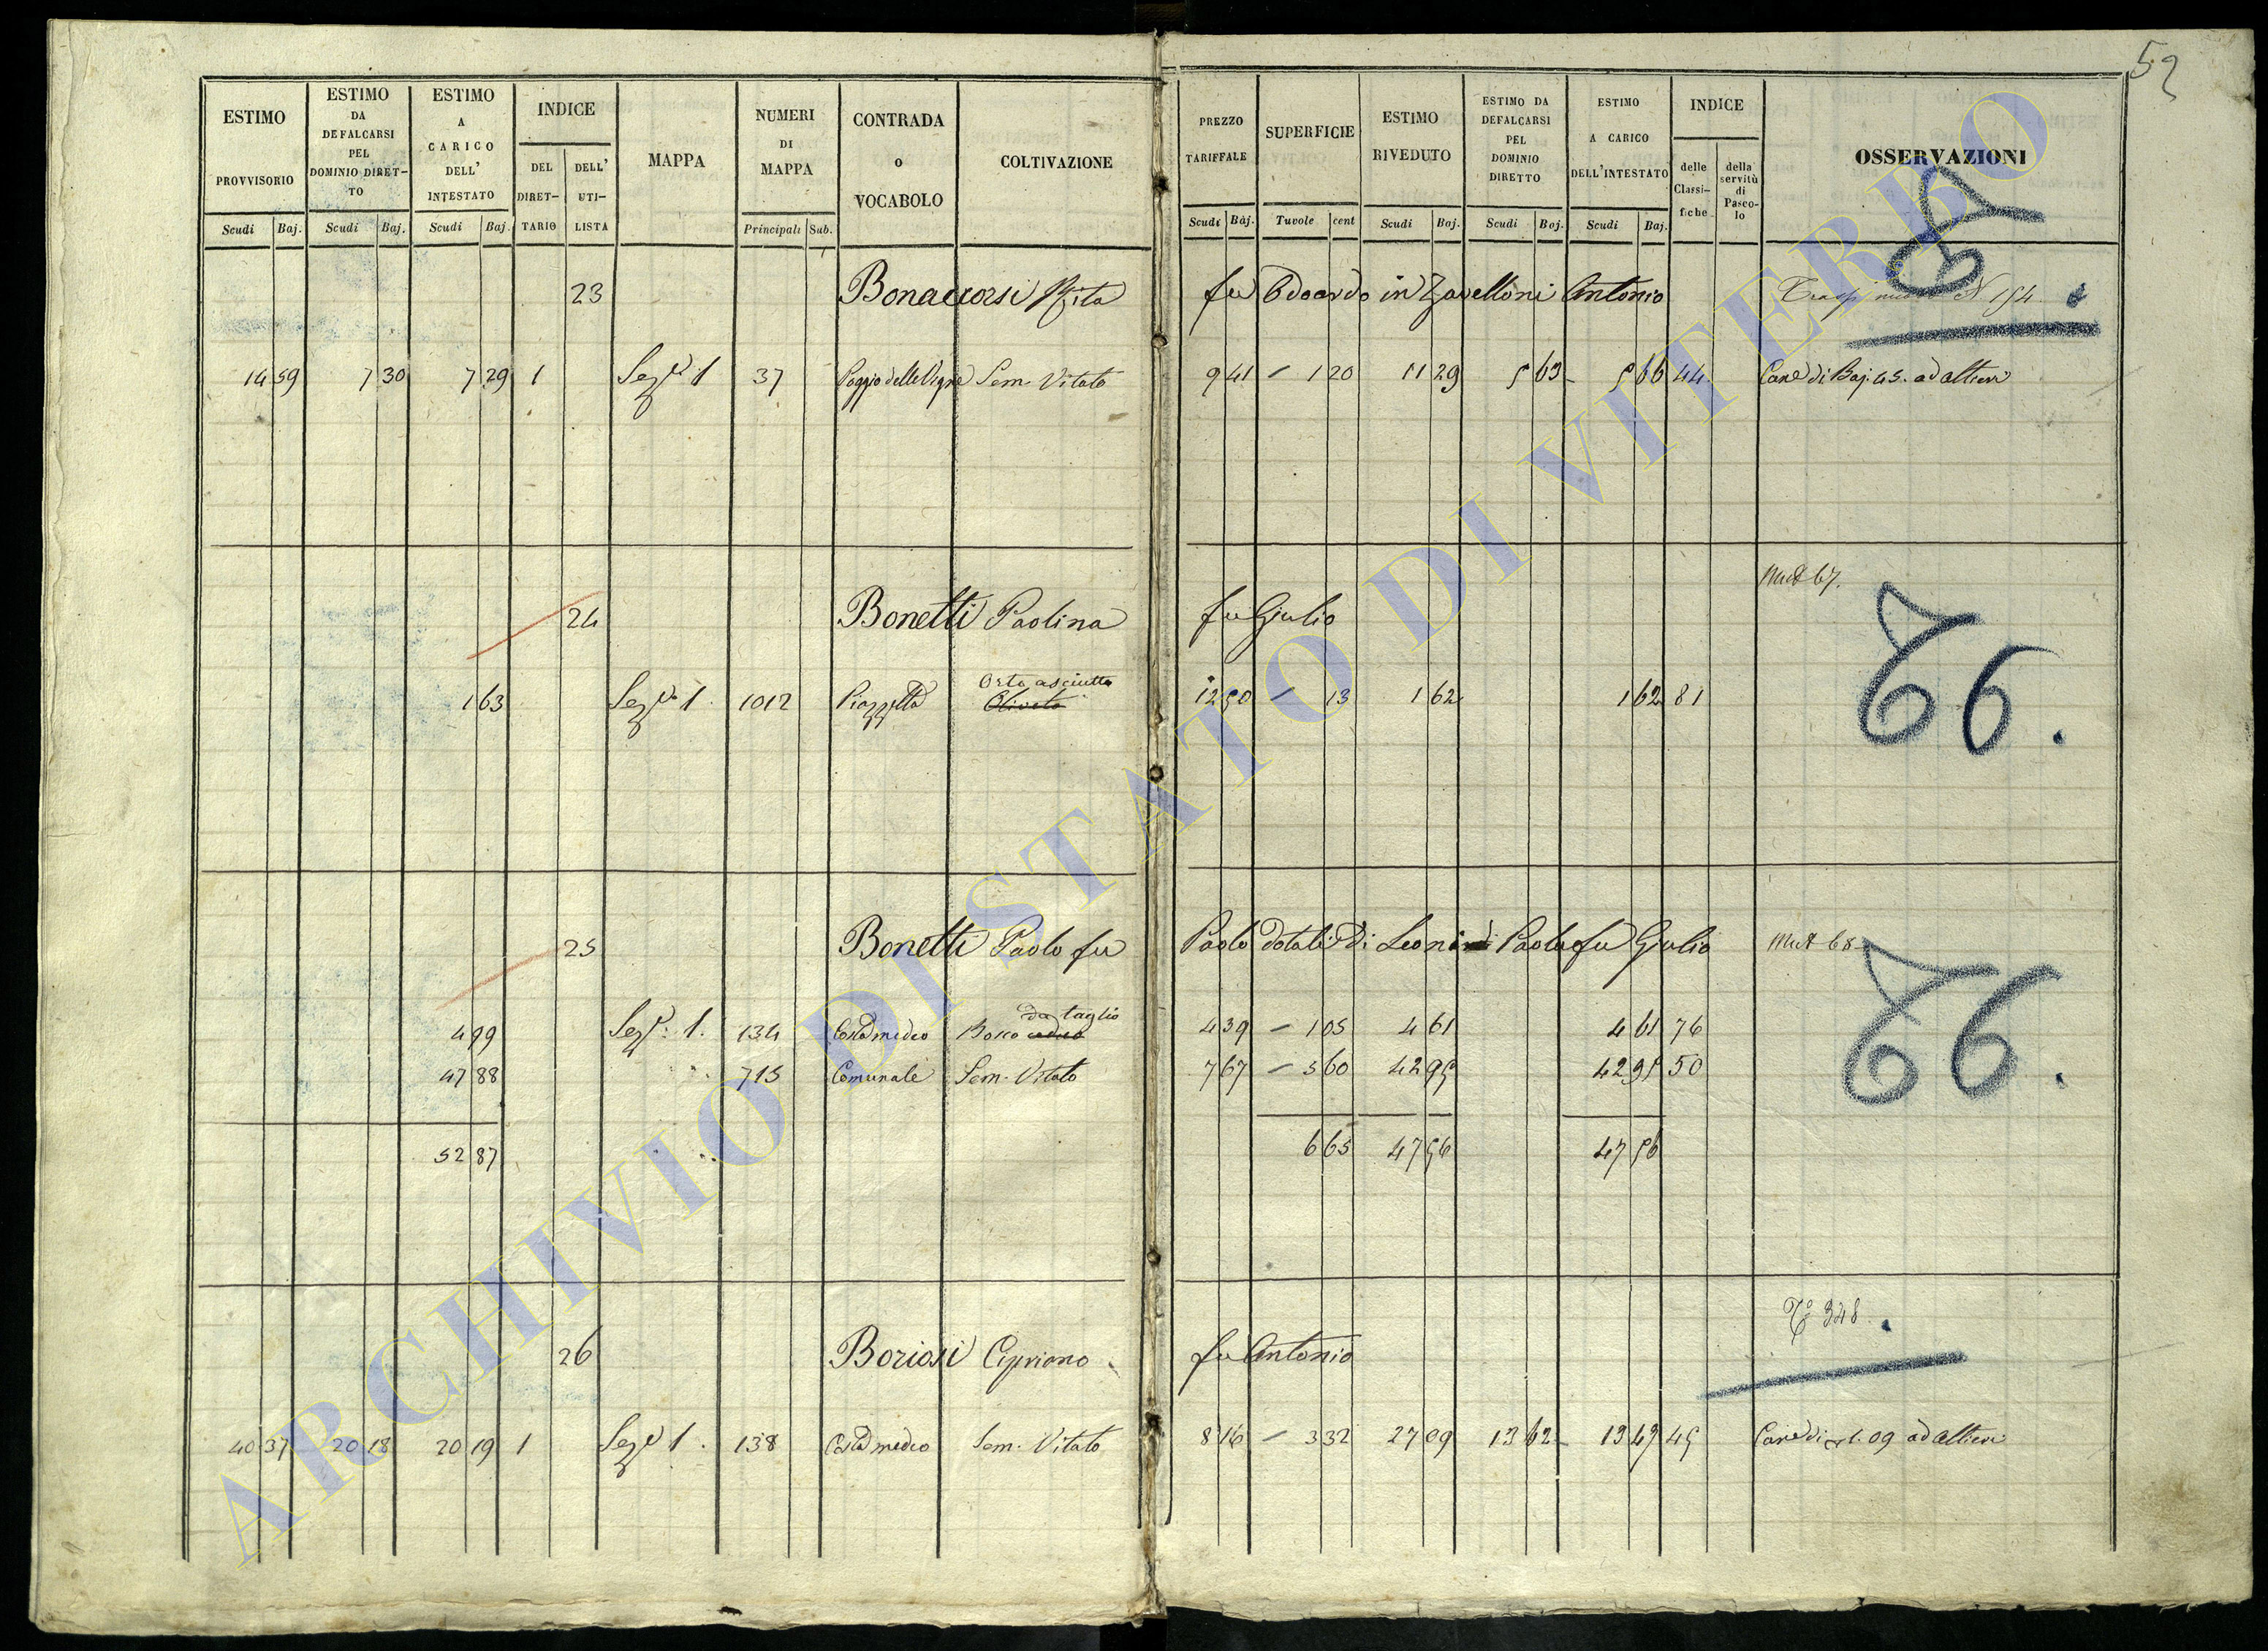 52
ESTIMO PROVVISORIO Scudi Baj.
ESTIMO DA DEFALCARSI PEL DOMINIO DIRETTO Scudi Baj.
ESTIMO A CARICO DELL' INTESTATO Scudi Baj.
INDICE DEL DIRETTARIO DELL' UTILISTA
MAPPA
NUMERI DI MAPPA Principali Sub.
CONTRADA o VOCABOLO
COLTIVAZIONE
PREZZO TARIFFALE Scudi Baj.
SUPERFICIE Tavole cent
ESTIMO RIVEDUTO Scudi Baj.
ESTIMO DA DEFALCARSI PEL DOMINIO DIRETTO Scudi Baj.
ESTIMO A CARICO DELL'INTESTATO Scudi Baj.
INDICE delle Classifiche della servitù di Pascolo
OSSERVAZIONI
23 Bonaccorsi Rita fu Edoardo in Zavelloni Antonio N 154
14 59 7 30 7 29 1 Sez.e 1 37 Poggio delle Vigne Sem. Vitato 9 41 – 1 20 11 29 5 63 5 66 44 Cane di Baj. 45. ad Altieri
Mut 67.
24 Bonetti Paolina fu Giulio
T6.
1 63 Sez.e 1. 1012 Piazzetta Orto asciutto Oliveto 12 50 – 13 1 62 1 62 81
25 Bonetti Paolo fu Paolo dotali di Leoni Paola fu Giulio Mut 68
T6.
4 99 Sez.e 1. 134 Costa medeo Bosco da taglio ceduo 4 39 – 1 05 4 61 4 61 76
47 88 " 715 Comunale Sem. Vitato 7 67 – 5 60 42 95 42 95 50
52 87 6 65 47 56 47 56
T.o 348.
26 Boriosi Cipriano fu Antonio
40 37 20 18 20 19 1 Sez.e 1. 138 Costa medeo Sem. Vitato 8 16 – 3 32 27 09 13 62 13 47 45 Cane di 1.09 ad Altieri
ARCHIVIO DI STATO DI VITERBO